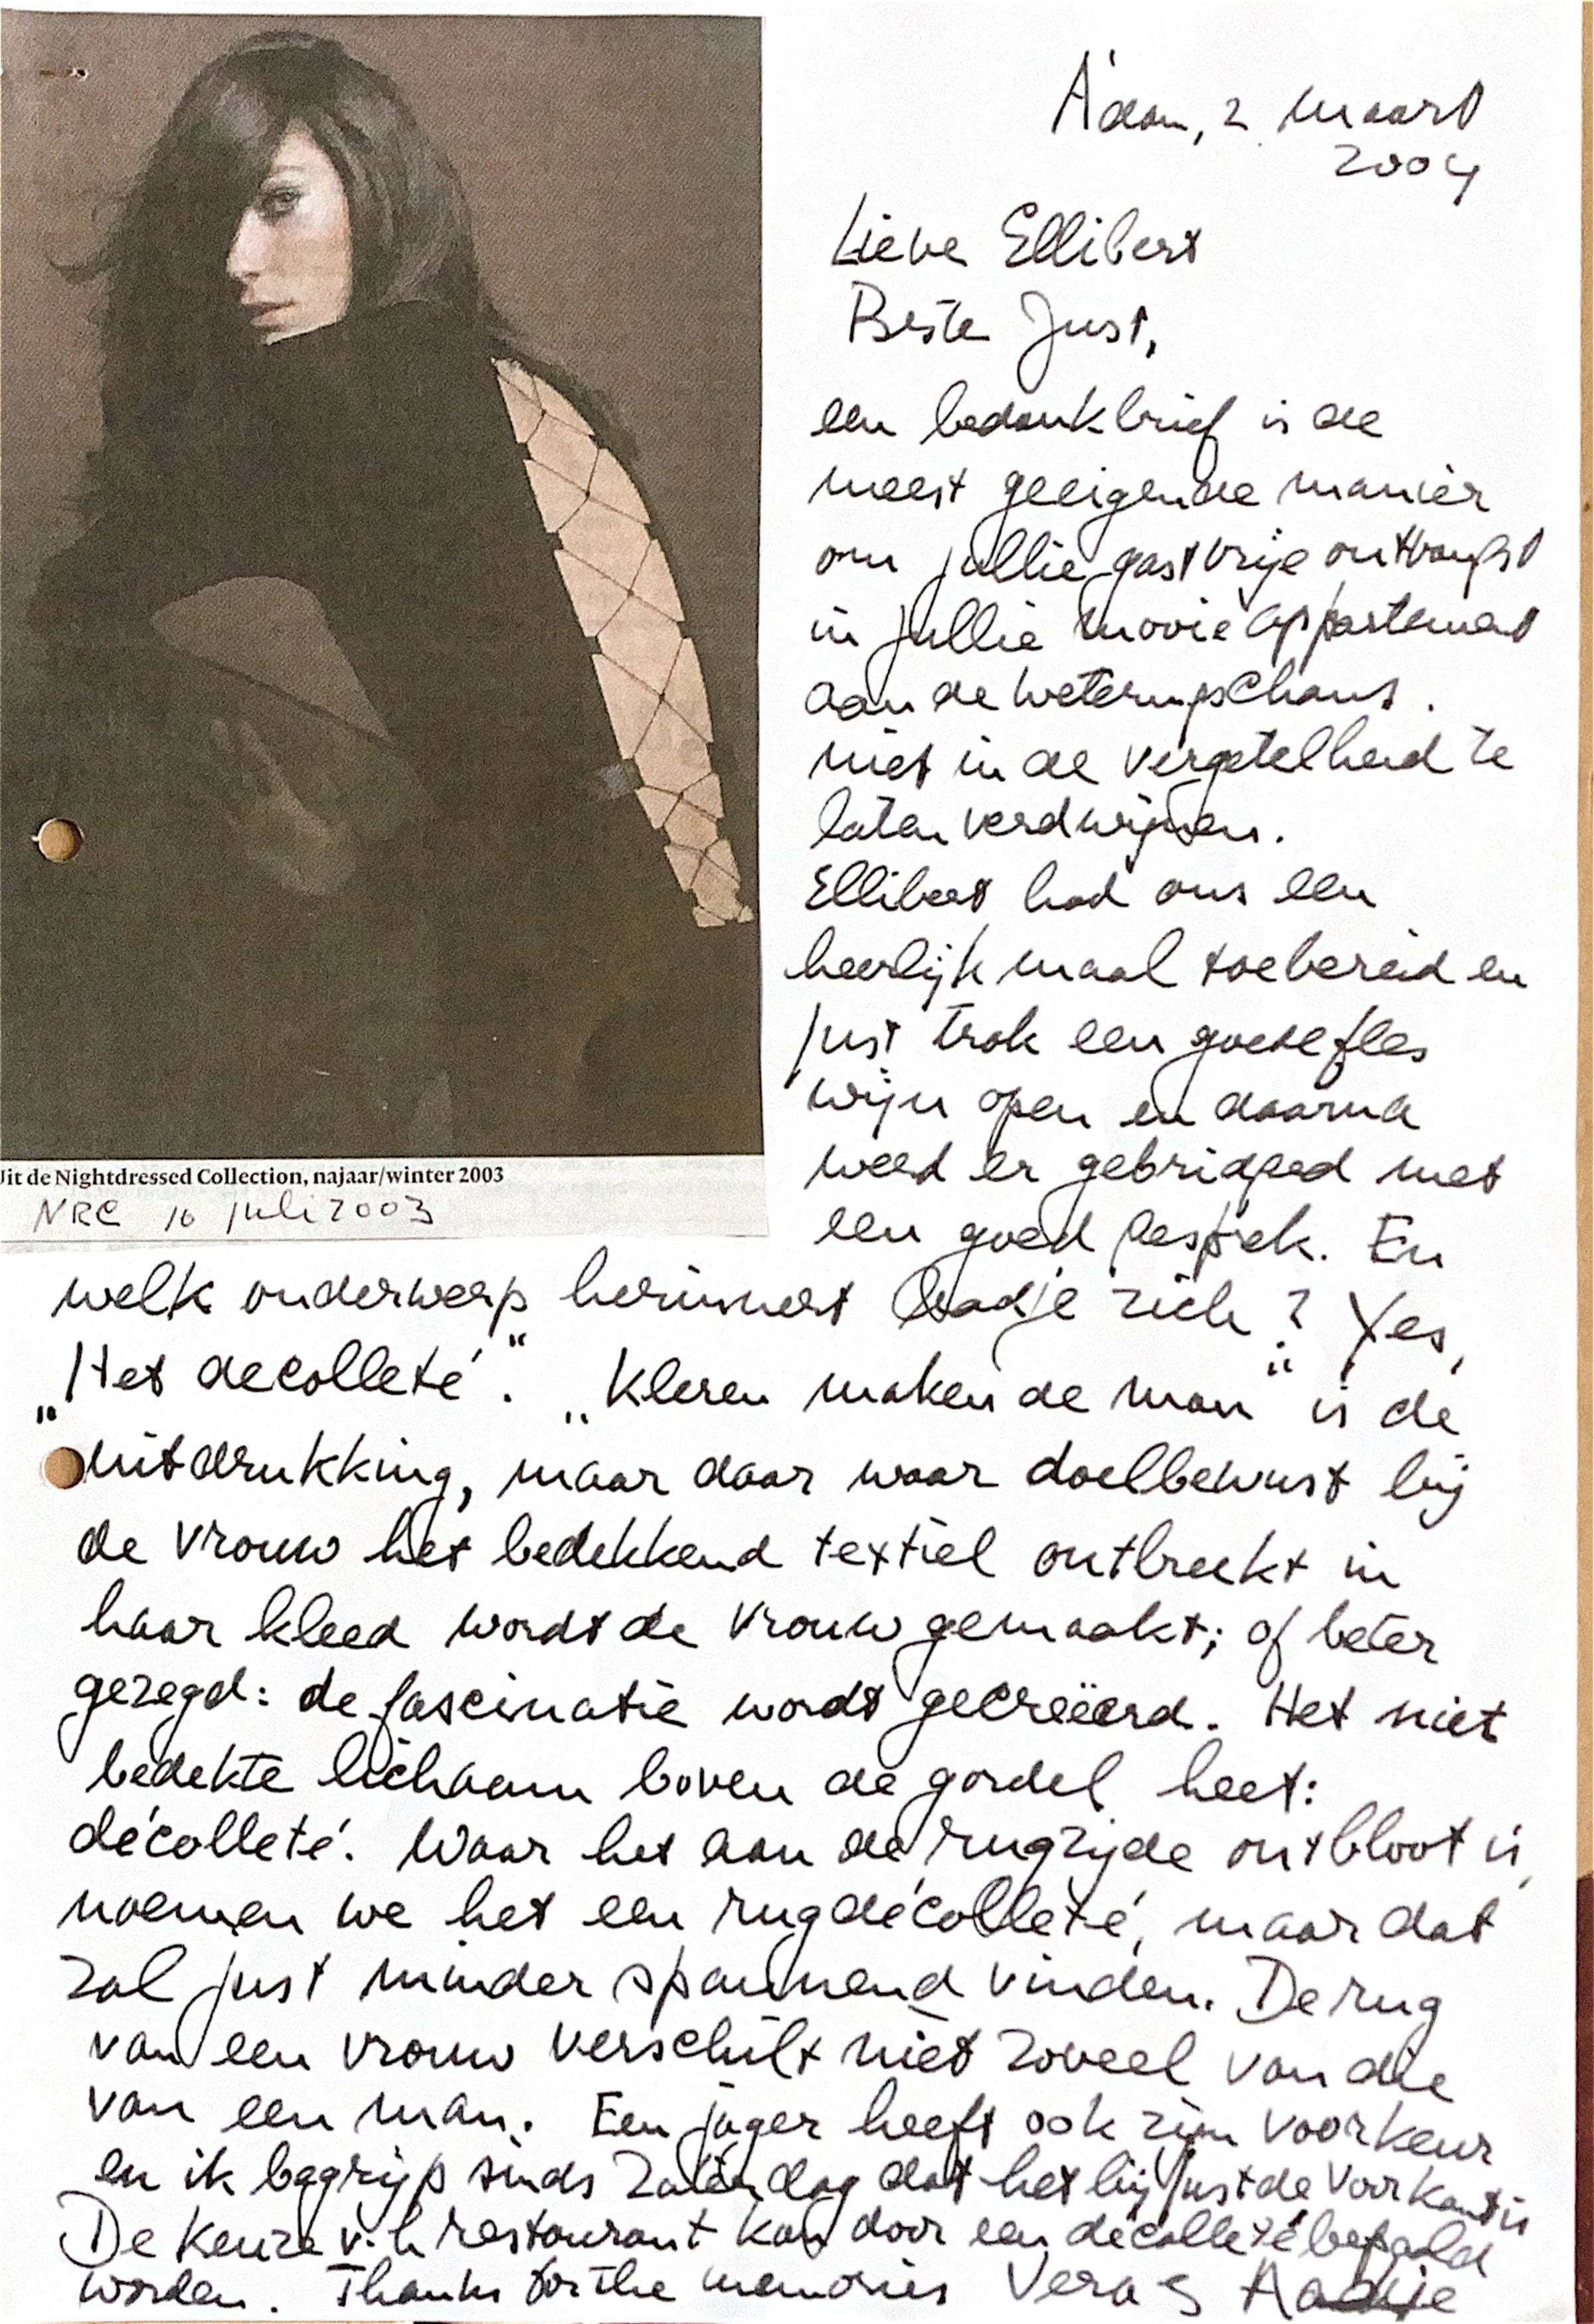 A'dam, 2 maart
2004
Lieve Ellibert
Beste Just,
een bedankbrief is de
meest geeigende manier
om jullie gastvrije ontvangst
in jullie mooie appartement
aan de Weteringschans.
niet in de vergetelheid te
laten verdwijnen.
Ellibert had ons een
heerlijk maal toebereid en
Just trok een goede fles
wijn open en daarna
werd er gebridged met
een goed gesprek. En
Uit de Nightdressed Collection, najaar/winter 2003
NRC 10 juli 2003
welk onderwerp herinnert Aadje zich? Yes,
„Het decolleté". „Kleren maken de man" is de
uitdrukking, maar daar waar doelbewust bij
de vrouw het bedekkend textiel ontbreekt in
haar kleed wordt de vrouw gemaakt; of beter
gezegd: de fascinatie wordt gecreëerd. Het niet
bedekte lichaam boven de gordel heet:
décolleté. Waar het aan de rugzijde ontbloot is,
noemen we het een rugdécolleté, maar dat
zal Just minder spannend vinden. De rug
van een vrouw verschilt niet zoveel van die
van een man. Een jager heeft ook zijn voorkeur
en ik begrijp sinds zaterdag dat het bij Just de voorkant is
De keuze v.h restaurant kan door een décolleté bepaald
worden. Thanks for the memories Vera & Aadje